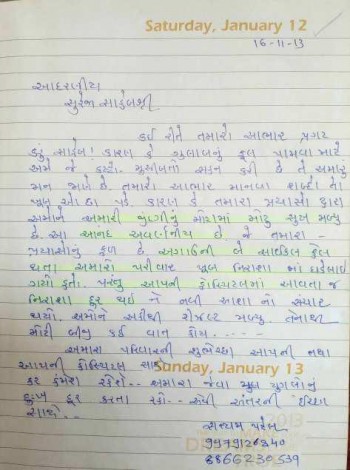 Saturday, January 12
16-11-13
આદરણીય
સુરેશ સાહેબશ્રી
કઈ રીતે તમારો આભાર પ્રગટ
કરું સાહેબ! કારણ કે ગુલાબનું ફૂલ પામવા માટે
અમે જે કષ્ટો, મુસીબતો સહન કરી છે તે અમારું
મન જાણે છે. તમારો આભાર માનવા શબ્દો તો
ખૂબ ઓછા પડે કારણ કે તમારા પ્રયાસો દ્વારા
અમોને અમારી જીંદગીનું મોટામાં મોટું સુખ મળ્યુ
છે. આ આનંદ અવર્ણનીય છે ને તે તમારા -
પ્રયાસોનું ફળ છે. અગાઉની બે સાઈકલ ફેલ
થતા અમારો પરીવાર ખૂબ નિરાશા માં ધકેલાઈ
ગયો હતો. પરંતુ આપની હોસ્પિટલમાં આવતા જ
નિરાશા દુર થઈ ને નવી આશા નો સંચાર
થયો. અમોને સારૂ રીઝલ્ટ મળ્યુ. તેનાથી
મોટી બીજી કઈ વાત હોય. ---
અમારા પરિવારની શુભેચ્છા આપની તથા
આપની હોસ્પિટલ સાથે
Sunday, January 13
હર હંમેશા રહેશે.. અમારા જેવા યુગલોનું
દુઃખ દુર કરતા રહો.. એવી અંતરની ઈચ્છા
સાથે..
પટેલ
9979126340
8866230539